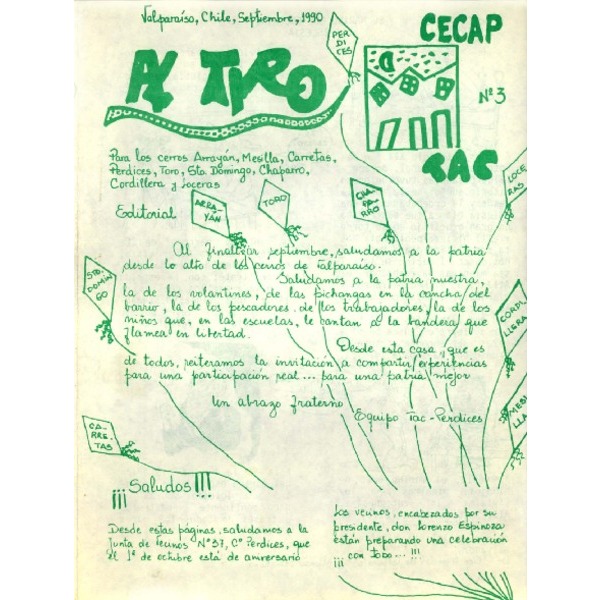 Valparaíso, Chile, Septiembre, 1990
CECAP
PER
DI
CES
AL TIRO
Nº 3
TAC
Para los cerros Arrayán, Mesilla, Carretas,
Perdices, Toro, Sto Domingo, Chaparro,
Cordillera y Loceras
LOCE
RAS
Editorial
ARRA
YÁN
TORO
CHA
PA
RRO
Al finalizar septiembre, saludamos a la patria
desde lo alto de los cerros de Valparaíso.
STO
DOMIN
GO
Saludamos a la patria nuestra,
la de los volantines, de las pichangas en la cancha del
barrio, la de los pescadores, de los trabajadores, la de los
niños que, en las escuelas, le cantan a la bandera que
flamea en libertad.
CORDI
LLERA
Desde esta casa, que es
de todos, reiteramos la invitación a compartir experiencias
para una participación real... para una patria mejor
Un abrazo fraterno
Equipo Tac-Perdices
MESI
LLA
CA-
RRE-
TAS
¡¡¡Saludos!!!
Desde estas páginas, saludamos a la
Junta de Vecinos Nº37, Cº Perdices, que
el 1º de octubre está de aniversario
Los vecinos, encabezados por su
presidente, don Lorenzo Espinoza
están preparando una celebración
¡¡¡ con todo...!!!